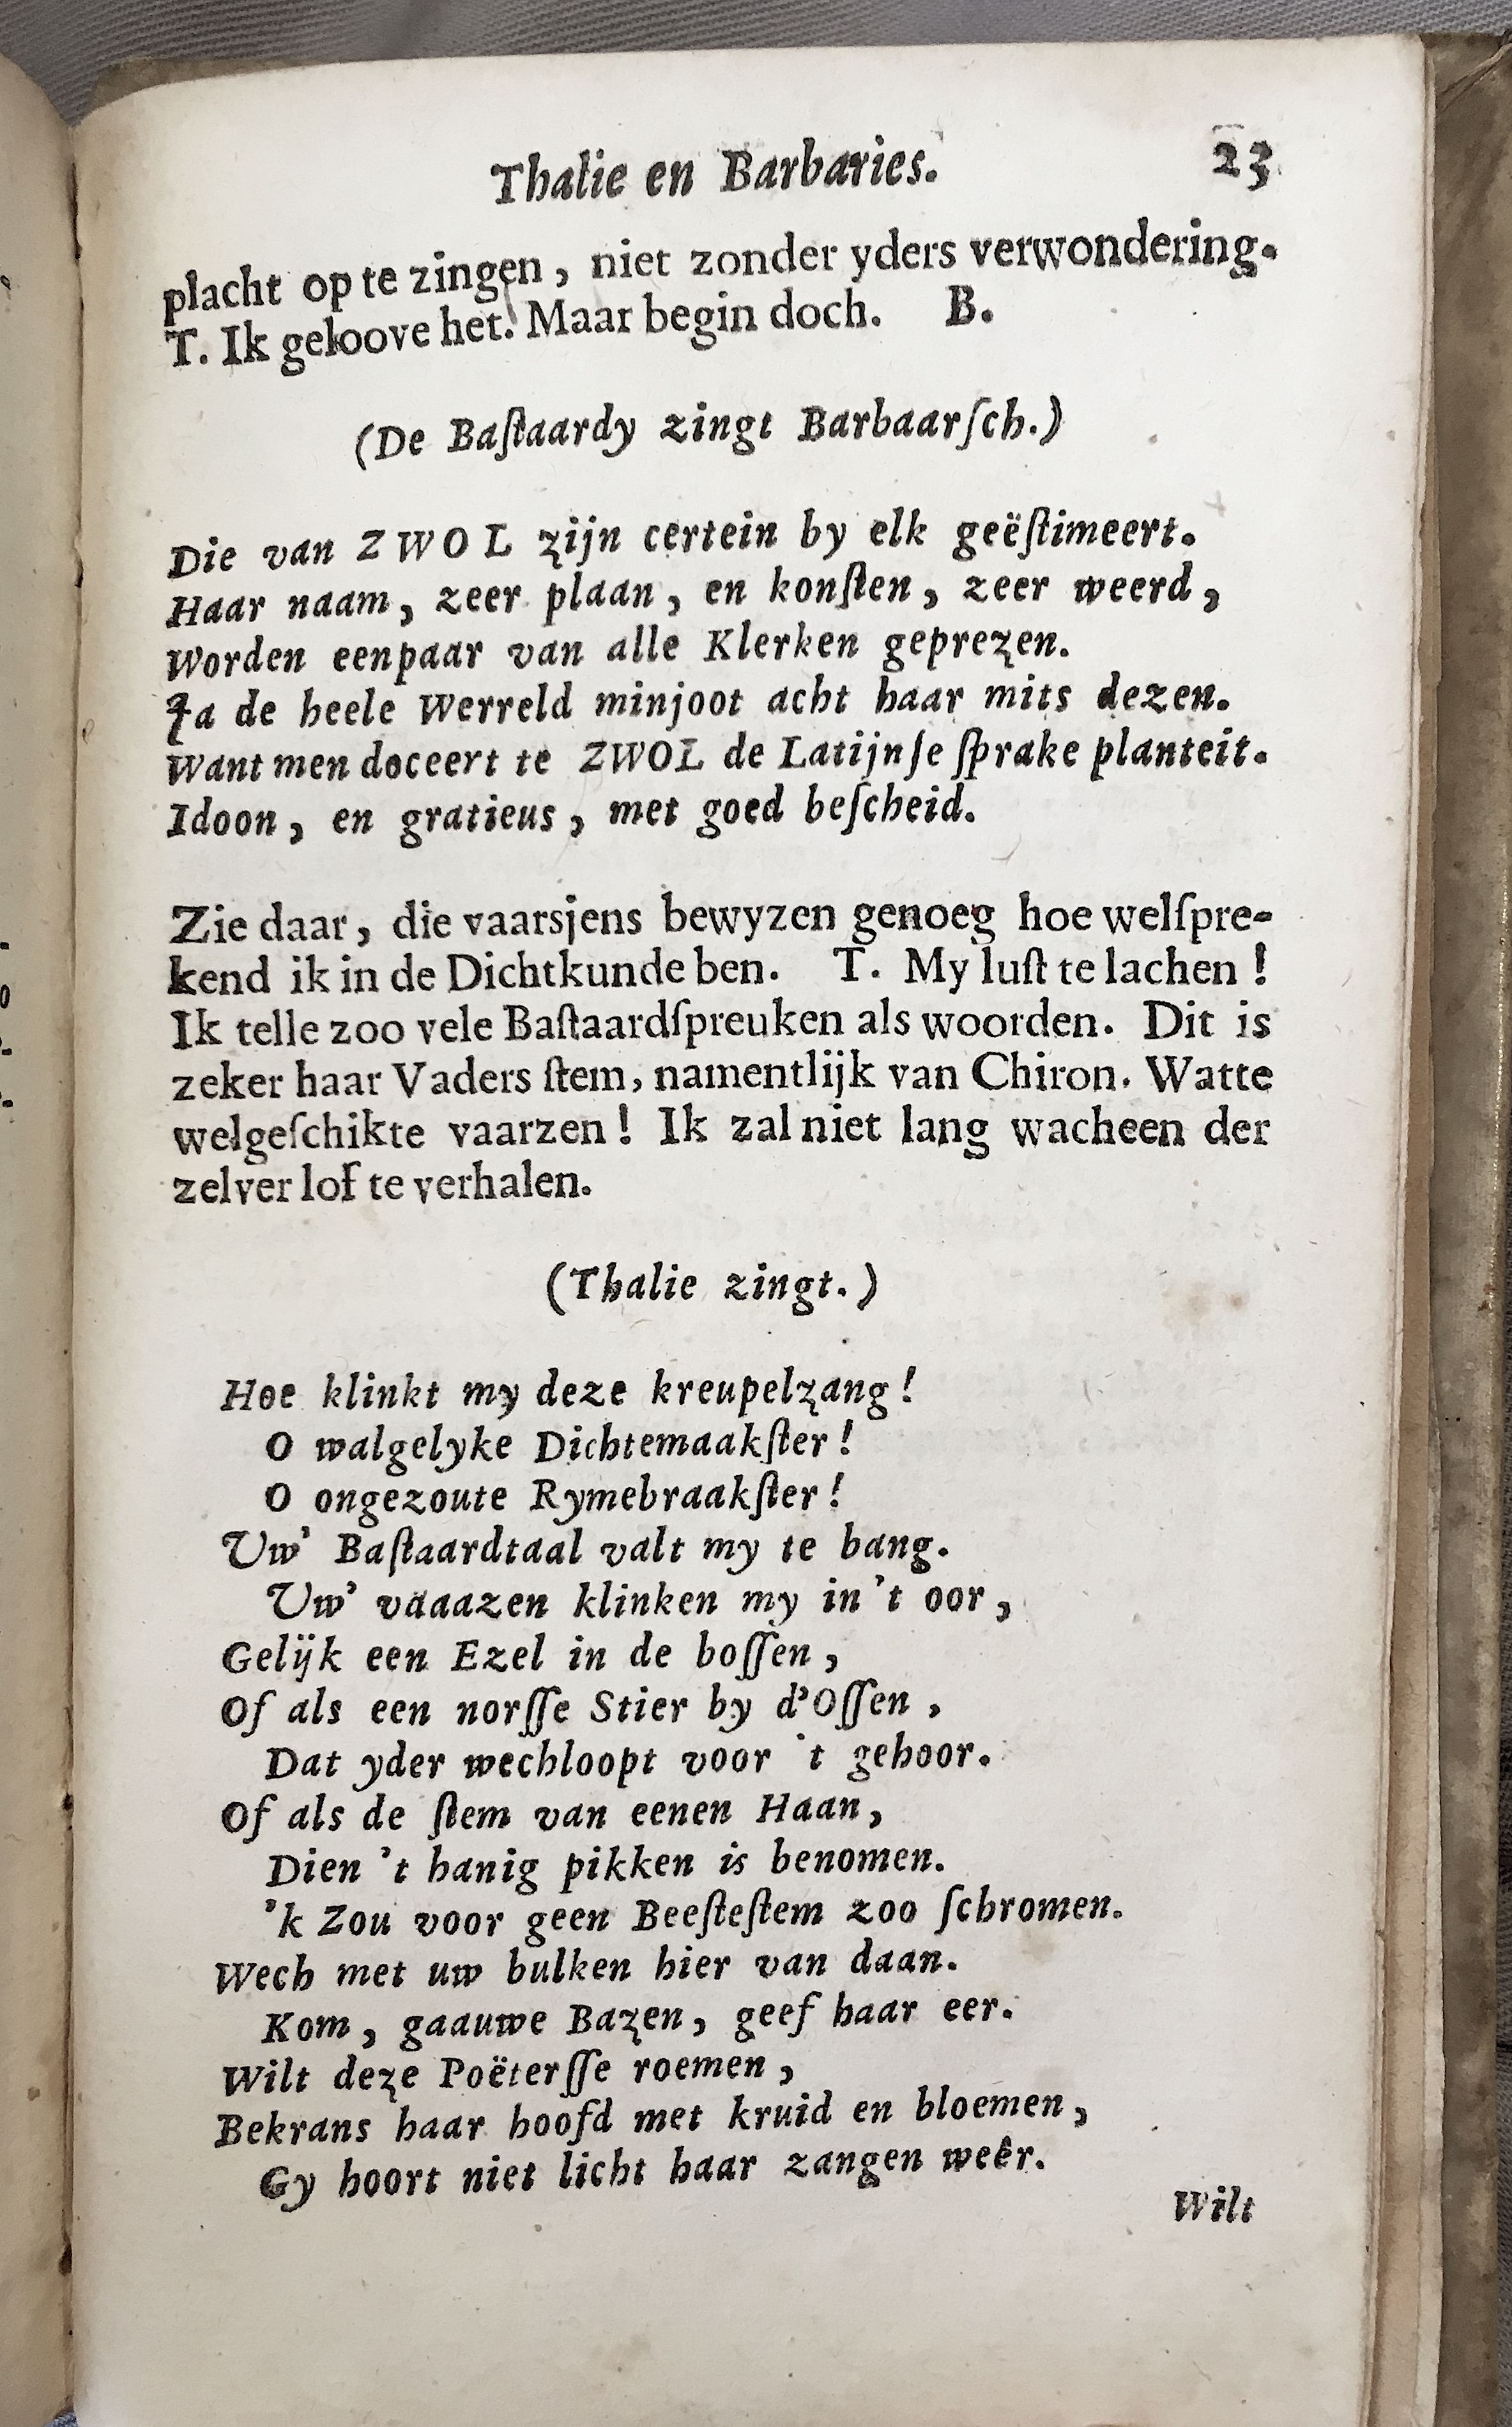 Thalie en Barbaries. 23
placht op te zingen, niet zonder yders verwondering.
T. Ik geloove het. Maar begin doch. B.
(De Baſtaardy zingt Barbaarſch.)
Die van ZWOL zijn certein by elk geëſtimeert.
Haar naam, zeer plaan, en konſten, zeer weerd,
Worden eenpaar van alle Klerken geprezen.
Ja de heele Werreld minjoot acht haar mits dezen.
Want men doceert te ZWOL de Latijnſe ſprake planteit.
Idoon, en gratieus, met goed beſcheid.
Zie daar, die vaarsjens bewyzen genoeg hoe welſpre-
kend ik in de Dichtkunde ben. T. My luſt te lachen!
Ik telle zoo vele Baſtaardſpreuken als woorden. Dit is
zeker haar Vaders ſtem, namentlijk van Chiron. Watte
welgeſchikte vaarzen! Ik zal niet lang wacheen der
zelver lof te verhalen.
(Thalie zingt.)
Hoe klinkt my deze kreupelzang!
O walgelyke Dichtemaakſter!
O ongezoute Rymebraakſter!
Uw' Baſtaardtaal valt my te bang.
Uw' vaaazen klinken my in 't oor,
Gelijk een Ezel in de boſſen,
Of als een norſſe Stier by d'Oſſen,
Dat yder wechloopt voor 't gehoor.
Of als de ſtem van eenen Haan,
Dien 't hanig pikken is benomen.
'k Zou voor geen Beeſteſtem zoo ſchromen.
Wech met uw bulken hier van daan.
Kom, gaauwe Bazen, geef haar eer.
Wilt deze Poëterſſe roemen,
Bekrans haar hoofd met kruid en bloemen,
Gy hoort niet licht haar zangen weêr.
Wilt